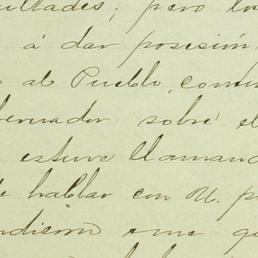 ultades; pero la
á dar posesión
al Pueblo, contin
bernador sobre el
estuve llamand
hablar con U. p
ndieron que qu